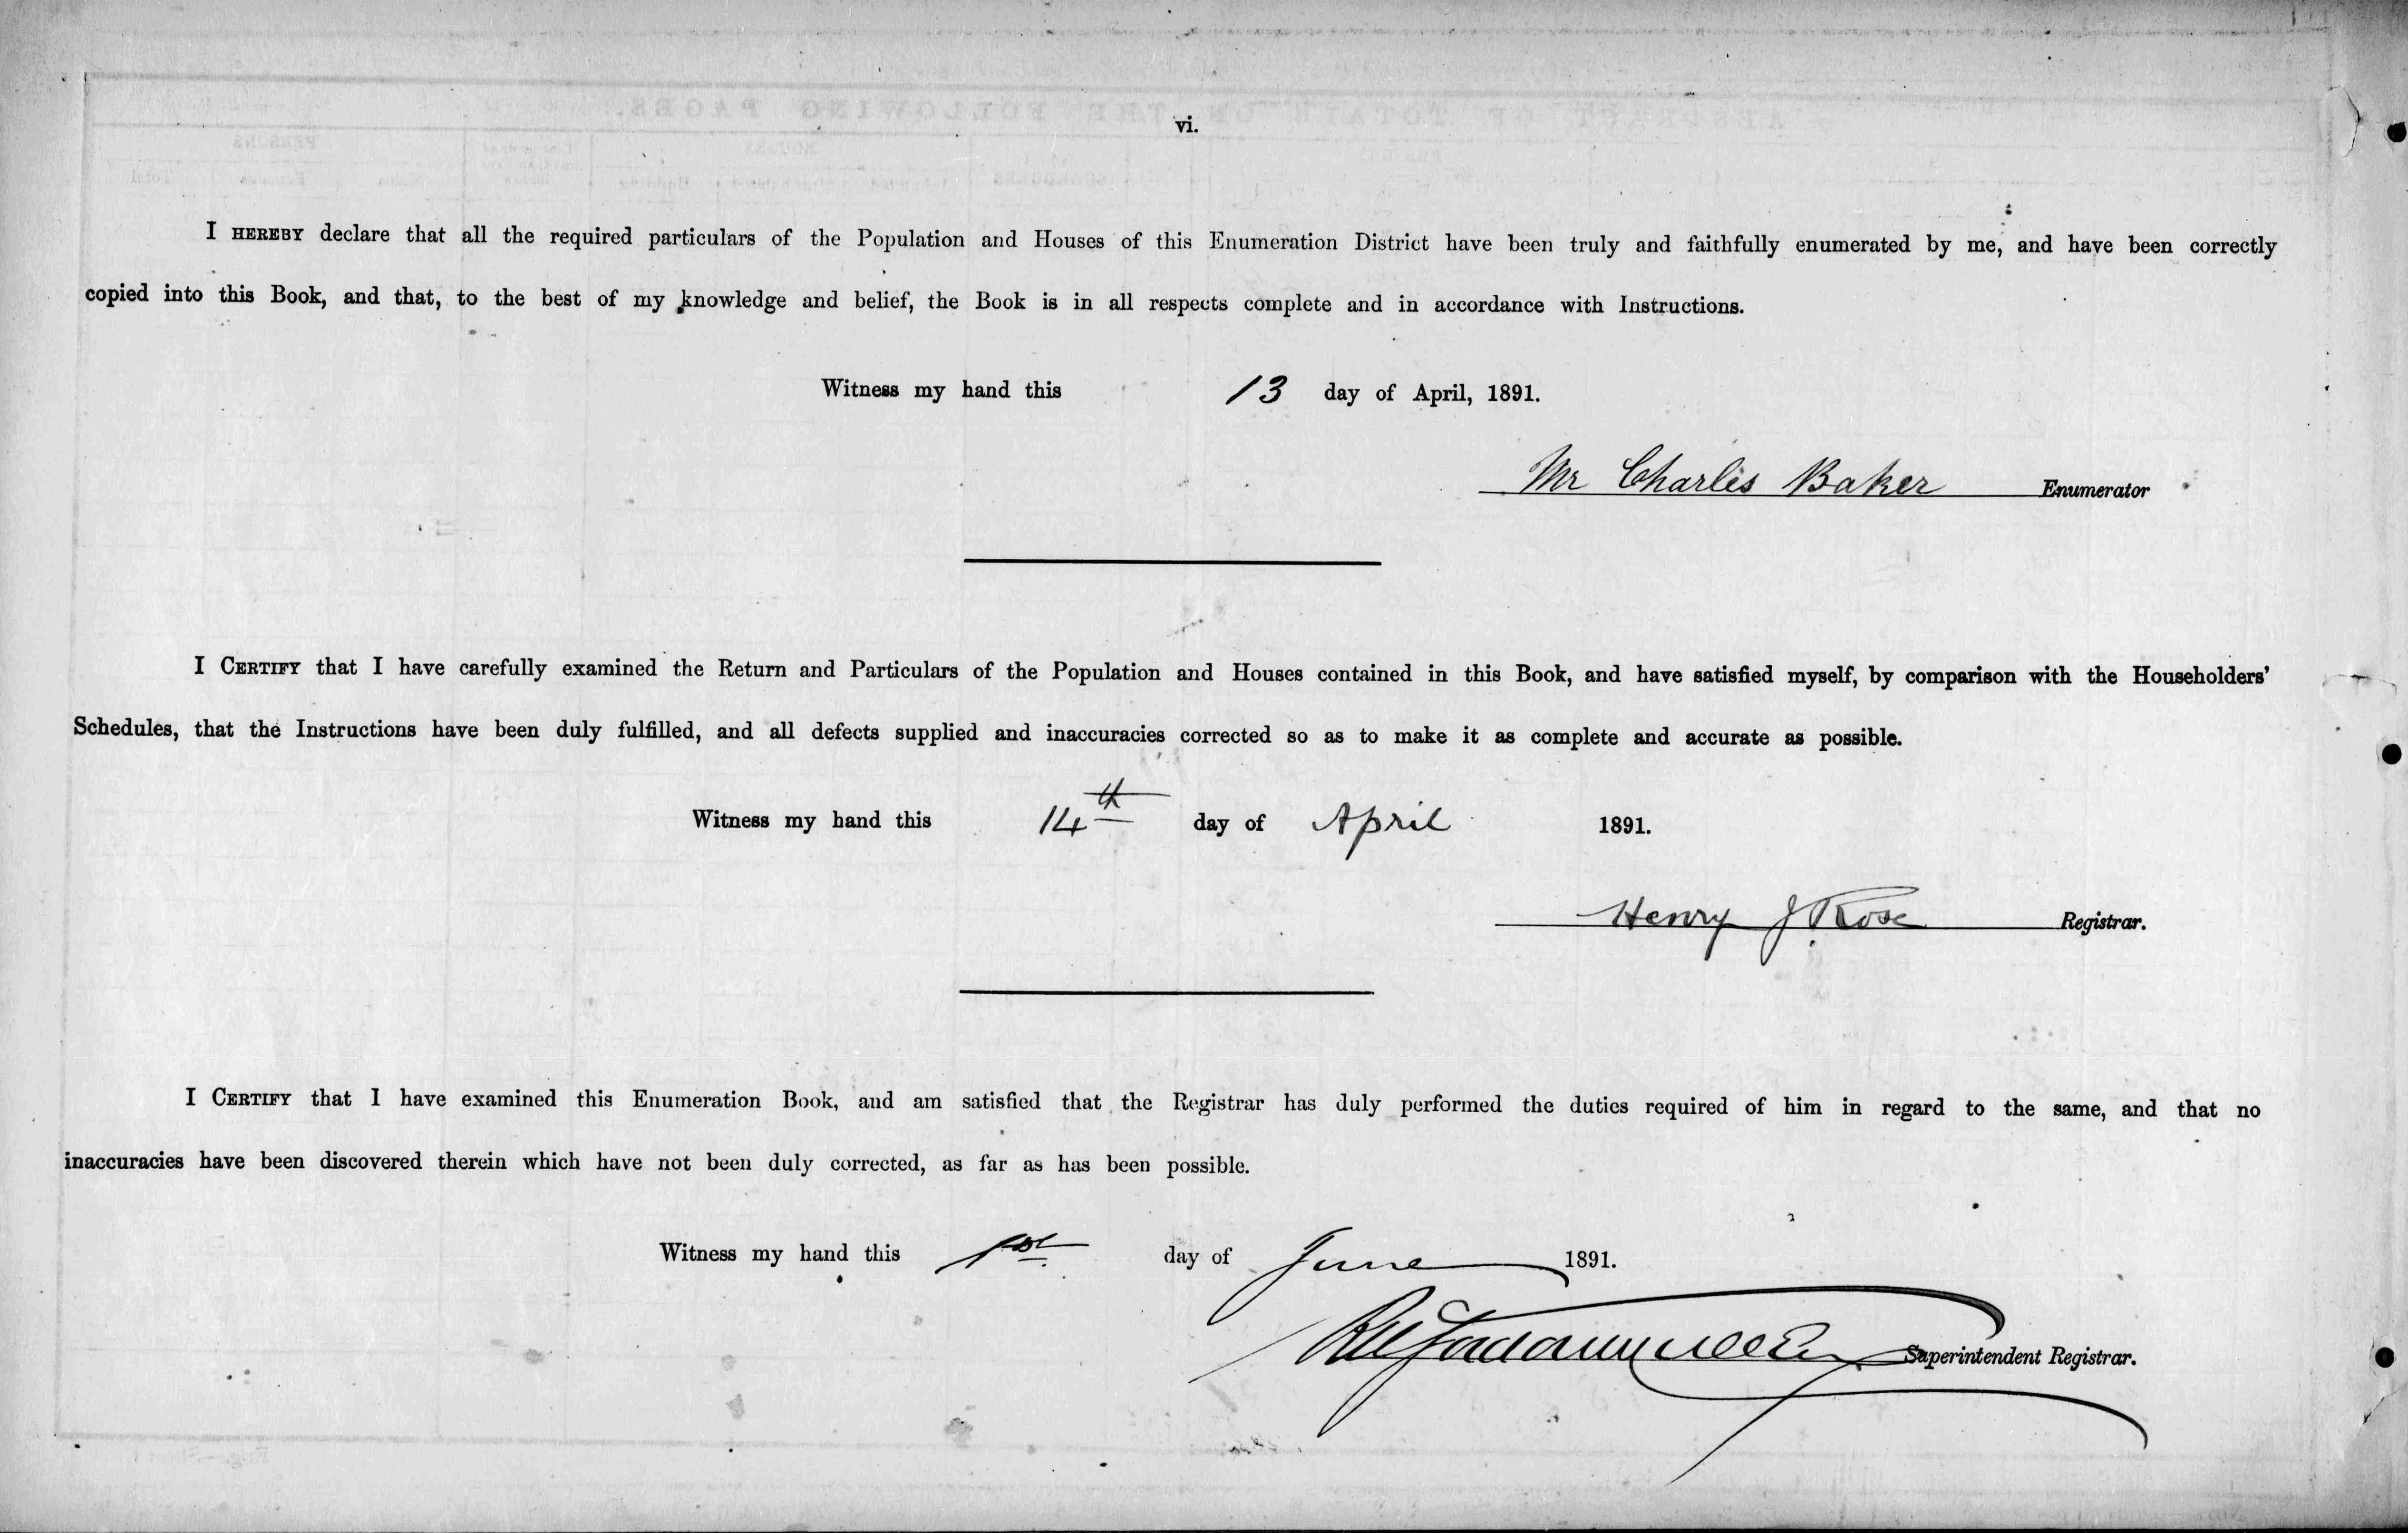 vi.
I HEREBY declare that all the required particulars of the Population and Houses of this Enumeration District have been truly and faithfully enumerated by me, and have been correctly
copied into this Book, and that, to the best of my knowledge and belief, the Book is in all respects complete and in accordance with Instructions.
Witness my hand this 13 day of April, 1891.
Mr Charles Baker Enumerator
I CERTIFY that I have carefully examined the Return and Particulars of the Population and Houses contained in this Book, and have satisfied myself, by comparison with the Householders'
Schedules, that the Instructions have been duly fulfilled, and all defects supplied and inaccuracies corrected so as to make it as complete and accurate as possible.
Witness my hand this 14th day of April 1891.
Henry J Rose Registrar.
I CERTIFY that I have examined this Enumeration Book, and am satisfied that the Registrar has duly performed the duties required of him in regard to the same, and that no
inaccuracies have been discovered therein which have not been duly corrected, as far as has been possible.
Witness my hand this 1st day of June 1891.
Superintendent Registrar.